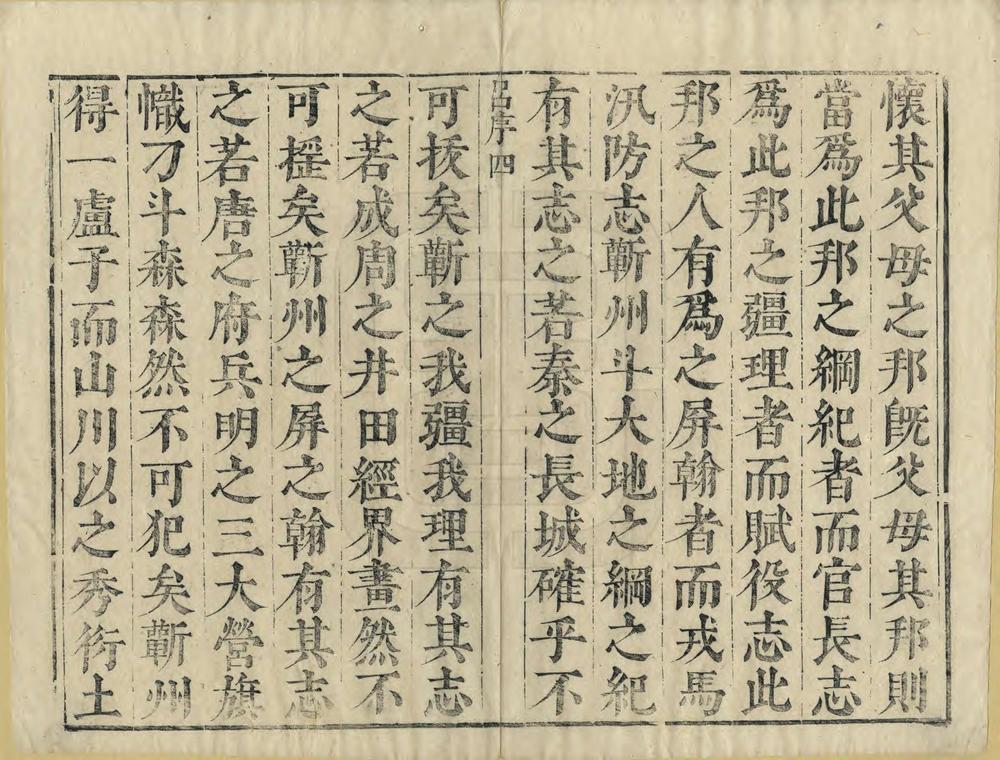 懷其父母之邦旣父母其邦則
當爲此邦之綱紀者而官長志
爲此邦之疆理者而賦役志此
邦之人有爲之屏翰者而戎馬
汛防志蘄州斗大地之綱之紀
有其志之若秦之長城確乎不
呂序四
可拔矣蘄之我疆我理有其志
之若成周之井田經界畫然不
可搖矣蘄州之屏之翰有其志
之若唐之府兵明之三大營旗
幟刁斗森森然不可犯矣蘄州
得一盧子而山川以之秀衍土